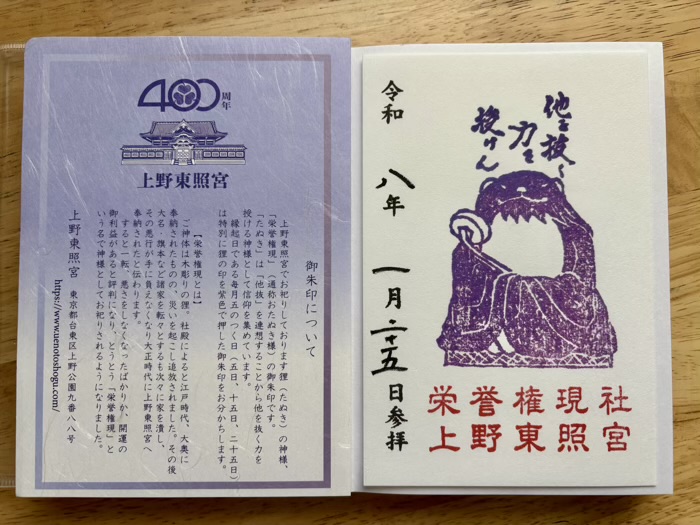 400周年
上野東照宮
御朱印について
上野東照宮でお祀りしております狸(たぬき)の神様、
「栄誉権現」(通称おたぬき様)の御朱印です。
「たぬき」は「他抜」を連想することから他を抜く力を
授ける神様として信仰を集めています。
縁起日である毎月五のつく日(五日、十五日、二十五日)
は特別に狸の印を紫色で押した御朱印をお分かちします。
【栄誉権現とは】
ご神体は木彫りの狸。社殿によると江戸時代、大奥に
奉納されたものの、災いを起こし追放されました。その後
大名・旗本など諸家を転々とするも次々に家を潰し、
その悪行が手に負えなくなり大正時代に上野東照宮へ
奉納されたと伝わります。
すると一転、悪さをしなくなったばかりか、開運の
御利益があると評判になり、とうとう「栄誉権現」と
いう名で神様としてお祀りされるようになりました。
上野東照宮 東京都台東区上野公園九番八八号
https://www.uenotoshogu.com/
他を抜く
力を
授けん
令和八年一月二十五日参拝
栄誉権現社
上野東照宮